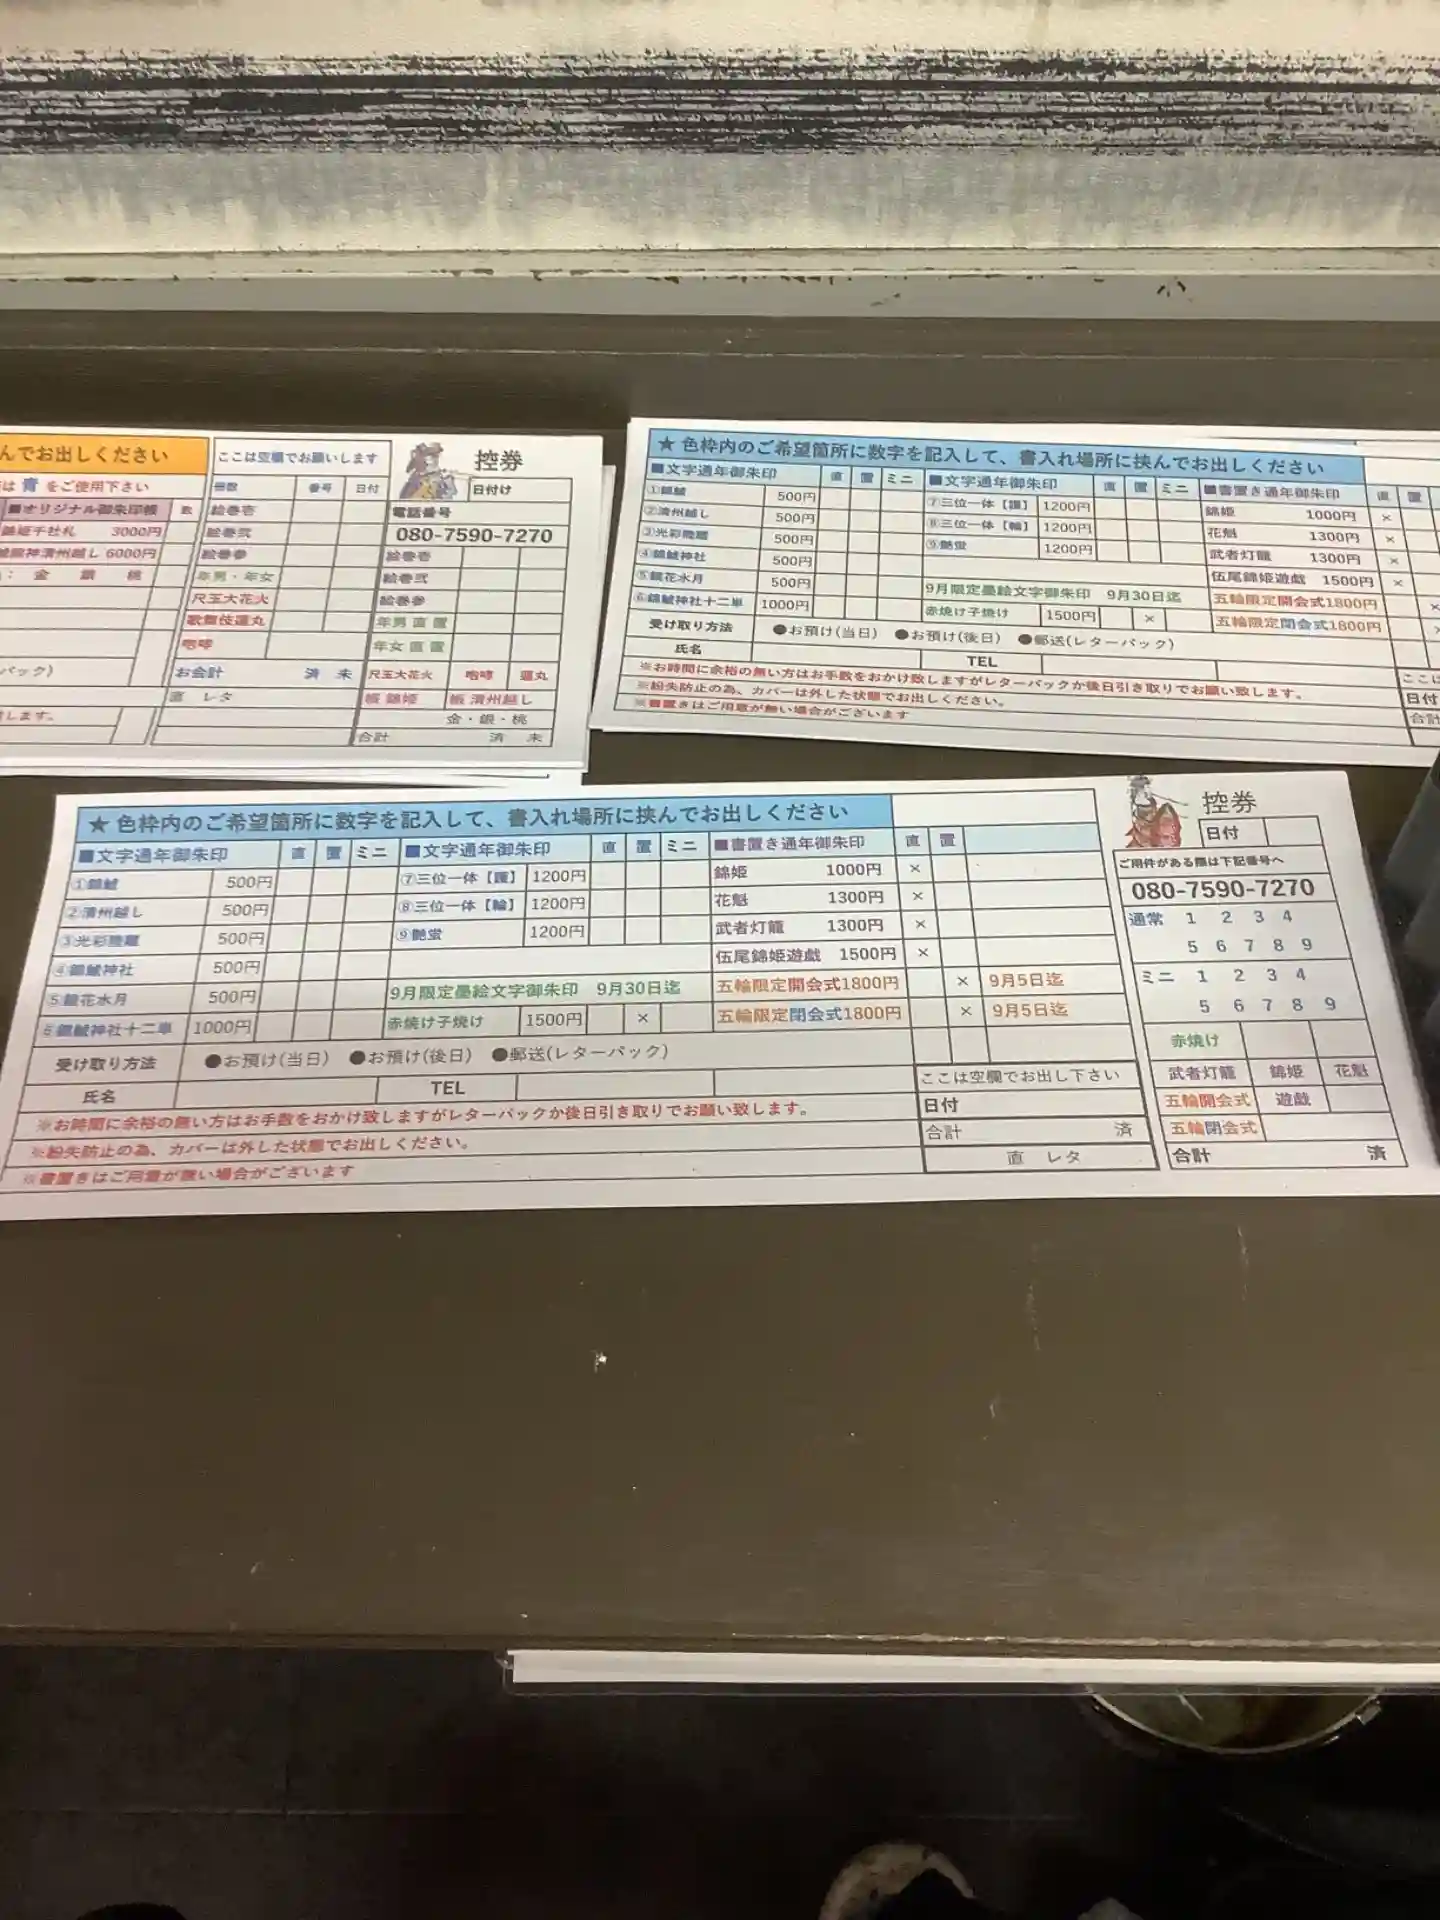 んでお出しください
は 青 をご使用下さい
■オリジナル御朱印帳 数
錦姫千社札 3000円
清州越し 6000円
金 銀 桃
パック)
します。
ここは空欄でお願いします
冊数 番号 日付
絵巻壱
絵巻弐
絵巻参
年男・年女
尺玉大花火
歌舞伎蓮丸
咆哮
お会計 済 未
直 レタ
控券
日付け
電話番号
080-7590-7270
絵巻壱
絵巻弐
絵巻参
年男 直 置
年女 直 置
尺玉大花火 咆哮 蓮丸
帳 錦姫 帳 清州越し
金・銀・桃
合計 済 未
★ 色枠内のご希望箇所に数字を記入して、書入れ場所に挟んでお出しください
■文字通年御朱印 直 置 ミニ ■文字通年御朱印 直 置 ミニ ■書置き通年御朱印 直 置
①錦鯱 500円 ⑦三位一体【護】 1200円 錦姫 1000円 ×
②清州越し 500円 ⑧三位一体【輪】 1200円 花魁 1300円 ×
③光彩陸離 500円 ⑨艶蛍 1200円 武者灯籠 1300円 ×
④錦鯱神社 500円 伍尾錦姫遊戯 1500円 ×
⑤鏡花水月 500円 9月限定墨絵文字御朱印 9月30日迄 五輪限定開会式1800円 ×
⑥錦鯱神社十二単 1000円 赤焼け子焼け 1500円 × 五輪限定閉会式1800円 ×
受け取り方法 ●お預け(当日) ●お預け(後日) ●郵送(レターパック)
氏名 TEL
※お時間に余裕の無い方はお手数をおかけ致しますがレターパックか後日引き取りでお願い致します。
※紛失防止の為、カバーは外した状態でお出しください。
※書置きはご用意が無い場合がございます
ここは
日付
合計
★ 色枠内のご希望箇所に数字を記入して、書入れ場所に挟んでお出しください
■文字通年御朱印 直 置 ミニ ■文字通年御朱印 直 置 ミニ ■書置き通年御朱印 直 置
①錦鯱 500円 ⑦三位一体【護】 1200円 錦姫 1000円 ×
②清州越し 500円 ⑧三位一体【輪】 1200円 花魁 1300円 ×
③光彩陸離 500円 ⑨艶蛍 1200円 武者灯籠 1300円 ×
④錦鯱神社 500円 伍尾錦姫遊戯 1500円 ×
⑤鏡花水月 500円 9月限定墨絵文字御朱印 9月30日迄 五輪限定開会式1800円 × 9月5日迄
⑥錦鯱神社十二単 1000円 赤焼け子焼け 1500円 × 五輪限定閉会式1800円 × 9月5日迄
受け取り方法 ●お預け(当日) ●お預け(後日) ●郵送(レターパック)
氏名 TEL
※お時間に余裕の無い方はお手数をおかけ致しますがレターパックか後日引き取りでお願い致します。
※紛失防止の為、カバーは外した状態でお出しください。
※書置きはご用意が無い場合がございます
ここは空欄でお出し下さい
日付
合計 済
直 レタ
控券
日付
ご用件がある際は下記番号へ
080-7590-7270
通常 1 2 3 4
5 6 7 8 9
ミニ 1 2 3 4
5 6 7 8 9
赤焼け
武者灯籠 錦姫 花魁
五輪開会式 遊戯
五輪閉会式
合計 済